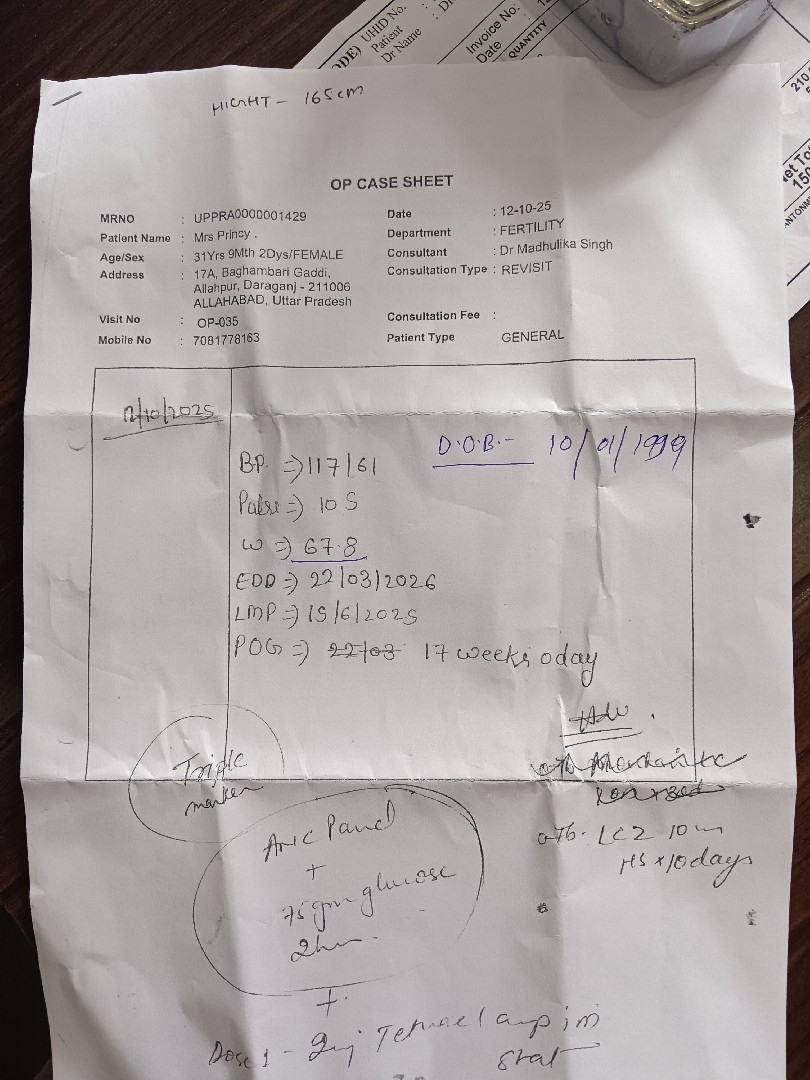 ODE) UHID No. :
Patient :
Dr Name
Invoice No:
Date
QUANTITY
HIGHT - 165cm
OP CASE SHEET
MRNO : UPPRA0000001429
Patient Name : Mrs Princy .
Age/Sex : 31Yrs 9Mth 2Dys/FEMALE
Address : 17A, Baghambari Gaddi,
Allahpur, Daraganj - 211006
ALLAHABAD, Uttar Pradesh
Visit No : OP-035
Mobile No : 7081778163
Date : 12-10-25
Department : FERTILITY
Consultant : Dr Madhulika Singh
Consultation Type : REVISIT
Consultation Fee :
Patient Type GENERAL
12/10/2025
D.O.B.- 10/01/1999
BP. => 117/61
Pulse => 105
W => 67.8
EDD => 22/03/2026
LMP => 15/6/2025
POG => 22/03 17 weeks 0day
Adv .
Triple
marker
ANC Panel
+
75 gm glucose
2hr
HS x 10 days
+
Dose 1 - Inj Tetvac 1 amp im
stat